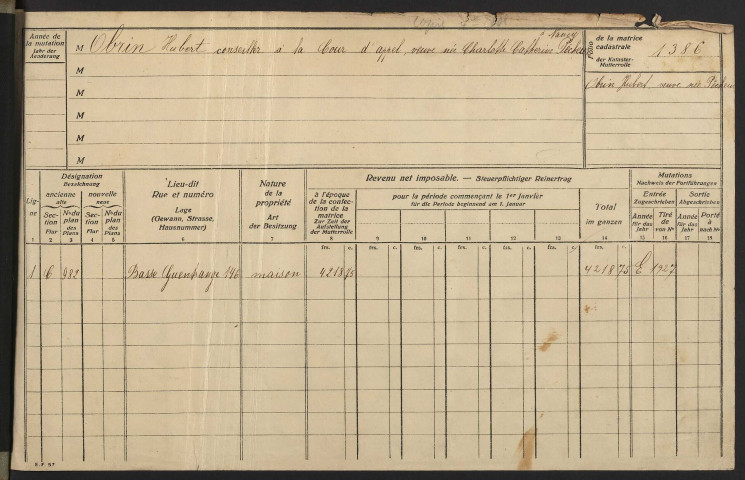 Année de la mutation
Jahr der Aenderung
M Obrin Hubert conseiller à la Cour d'appel veuve née Charlotte Catherine
Nancy
M
M
M
M
M
folio
de la matrice cadastrale
der Kataster-Mutterrolle
1386
Obrin Hubert veuve née
Lig-ne
Désignation
Bezeichnung
ancienne
alte
nouvelle
neue
Sec-tion
Flur
No du plan
des Plans
Sec-tion
Flur
No du plan
des Plans
Lieu-dit
Rue et numéro
Lage
(Gewann, Strasse, Hausnummer)
Nature de la propriété
Art der Besitzung
Revenu net imposable. — Steuerpflichtiger Reinertrag
à l'époque de la confection de la matrice
Zur Zeit der Aufstellung der Mutterrolle
pour la période commençant le 1er janvier
für die Periode beginnend am 1. Januar
Total
im ganzen
Mutations
Nachweis der Fortführungen
Entrée
Zugeschrieben
Sortie
Abgeschrieben
Année
für das Jahr
Tiré de
von No
Année
für das Jahr
Porté à
nach No
1 2 3 4 5 6 7 8 9 10 11 12 13 14 15 16 17 18
frs. c. frs. c. frs. c. frs. c. frs. c. frs. c. frs. c.
1 6 982 Basse Guenbange 196 maison 4218 75 4218 75 E 1927